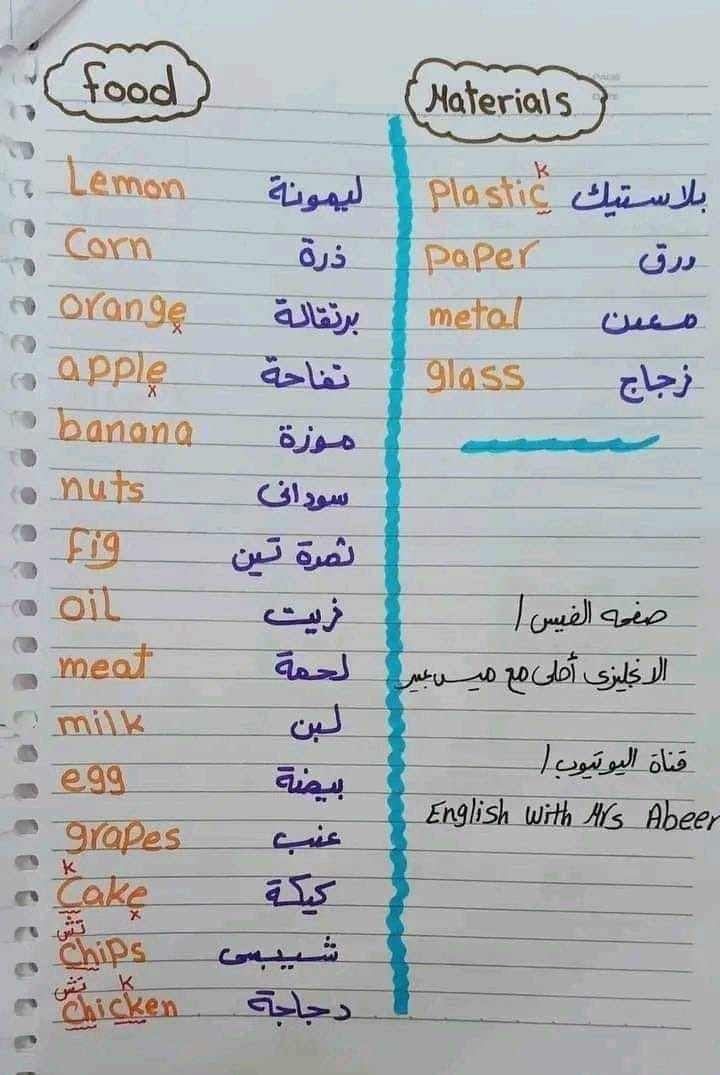 Food
Lemon ليمونة
Corn ذرة
orange برتقالة
x
apple تفاحة
x
banana موزة
nuts سودانى
Fig ثمرة تين
oil زيت
meat لحمة
milk لبن
egg بيضة
grapes عنب
k
Cake كيكة
x
تش
Chips شيبسى
تش k
Chicken دجاجة
Materials
k
Plastic بلاستيك
paper ورق
metal معدن
glass زجاج
صفحه الفيس /
الانجليزى أحلى مع ميس عبير
قناة اليوتيوب /
English with Mrs Abeer